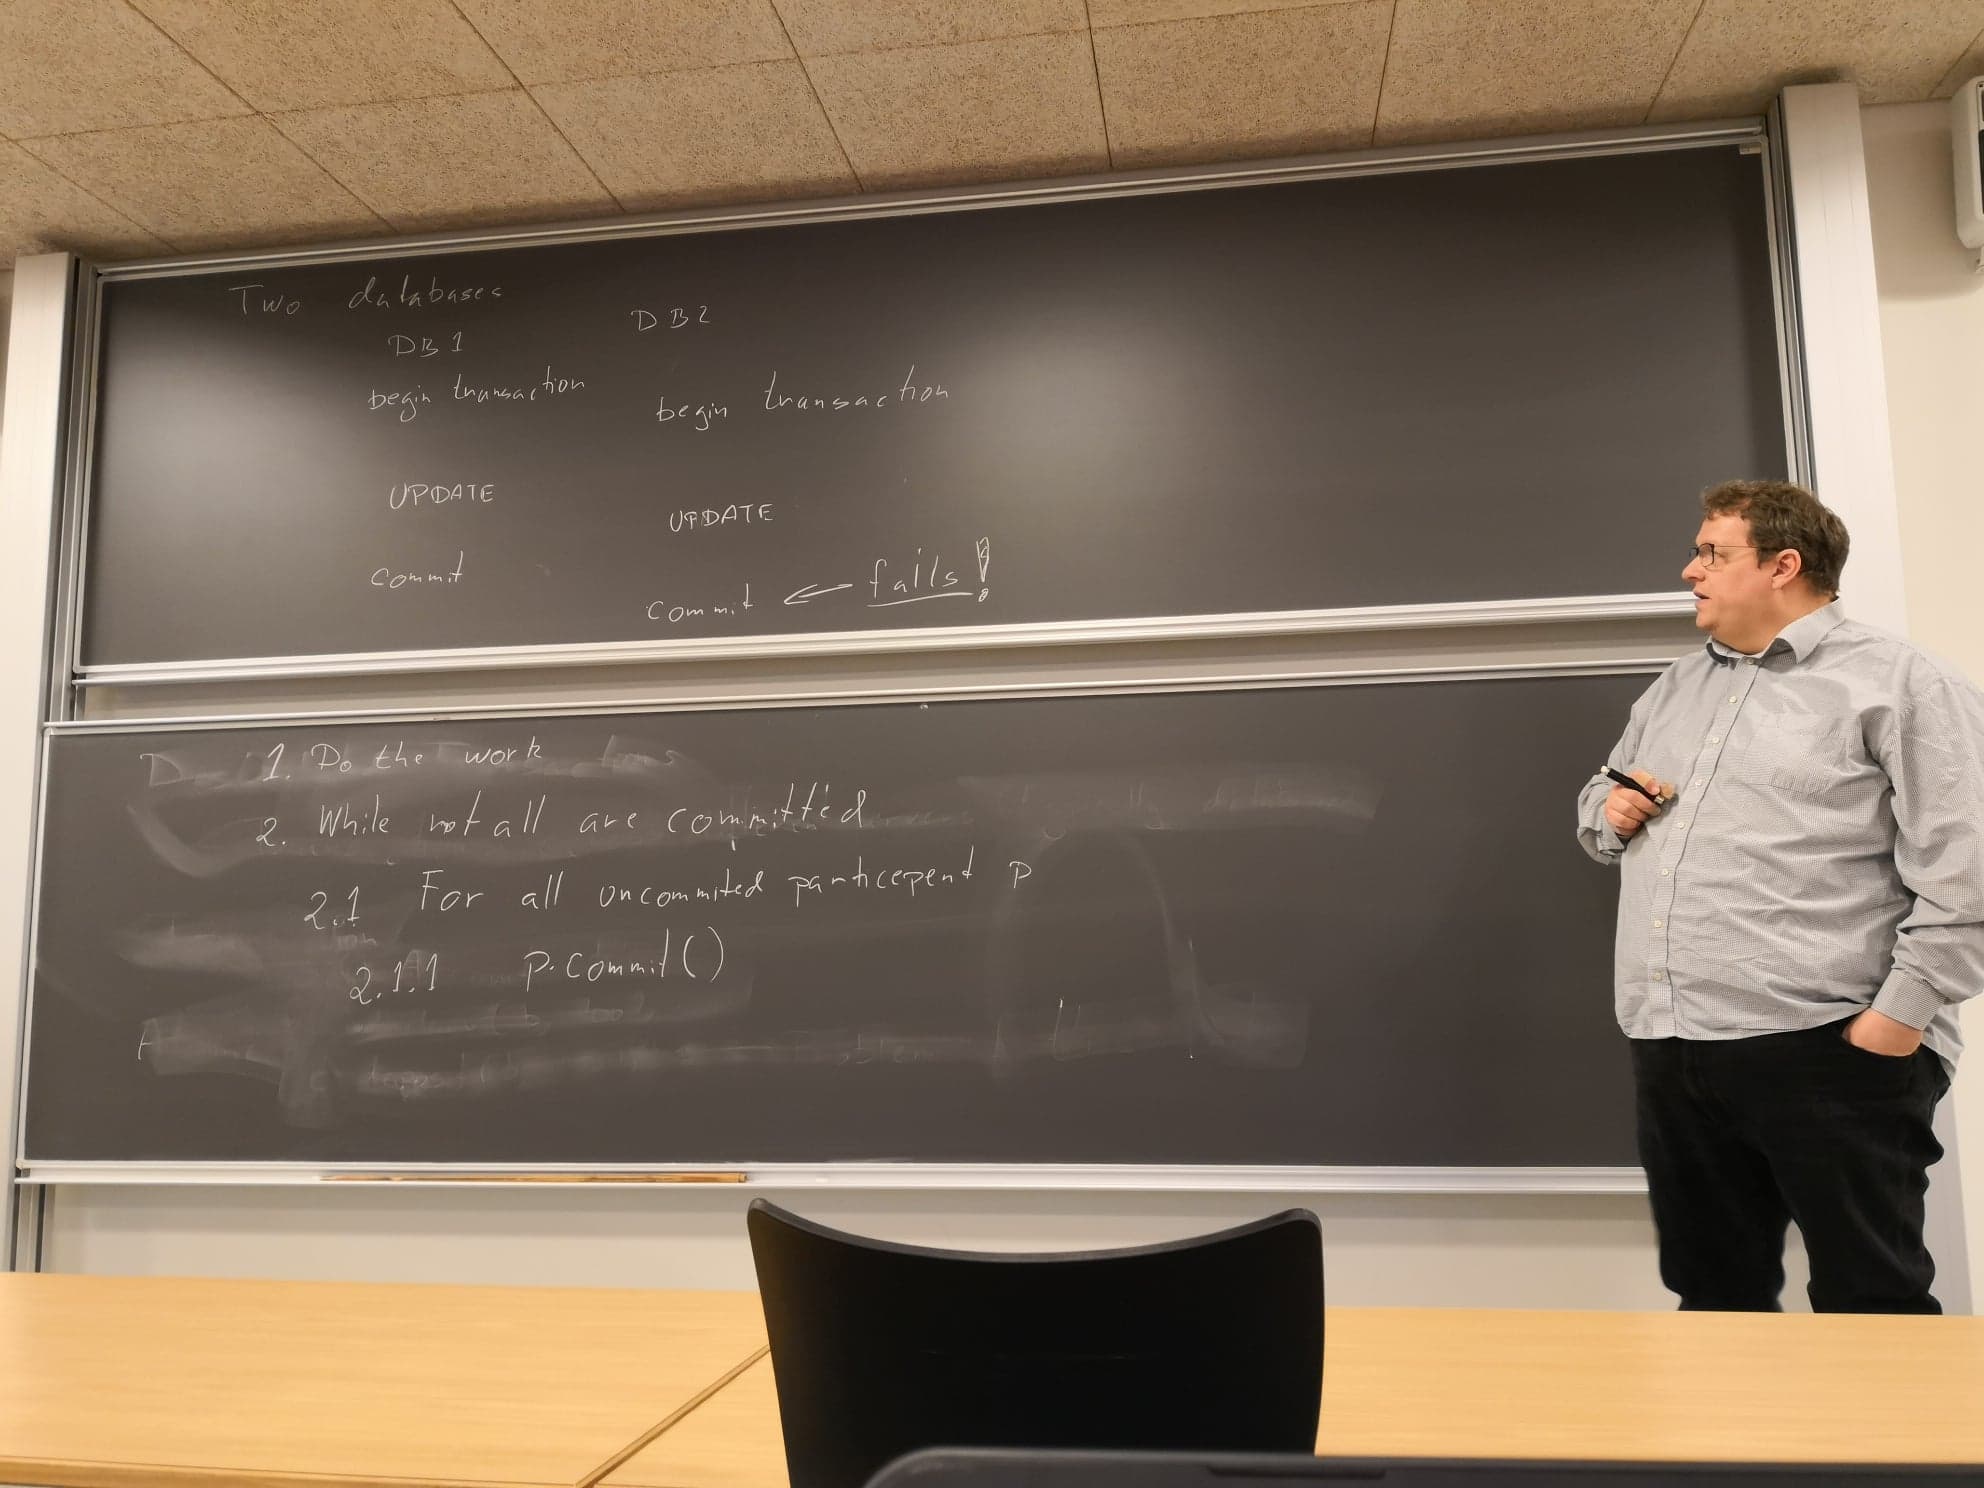 Two databases
DB1
DB2
begin transaction
begin transaction
UPDATE
UPDATE
commit
commit ← fails!
1. Do the work
2. While not all are committed
2.1 For all uncommited particepent P
2.1.1 P.Commit()